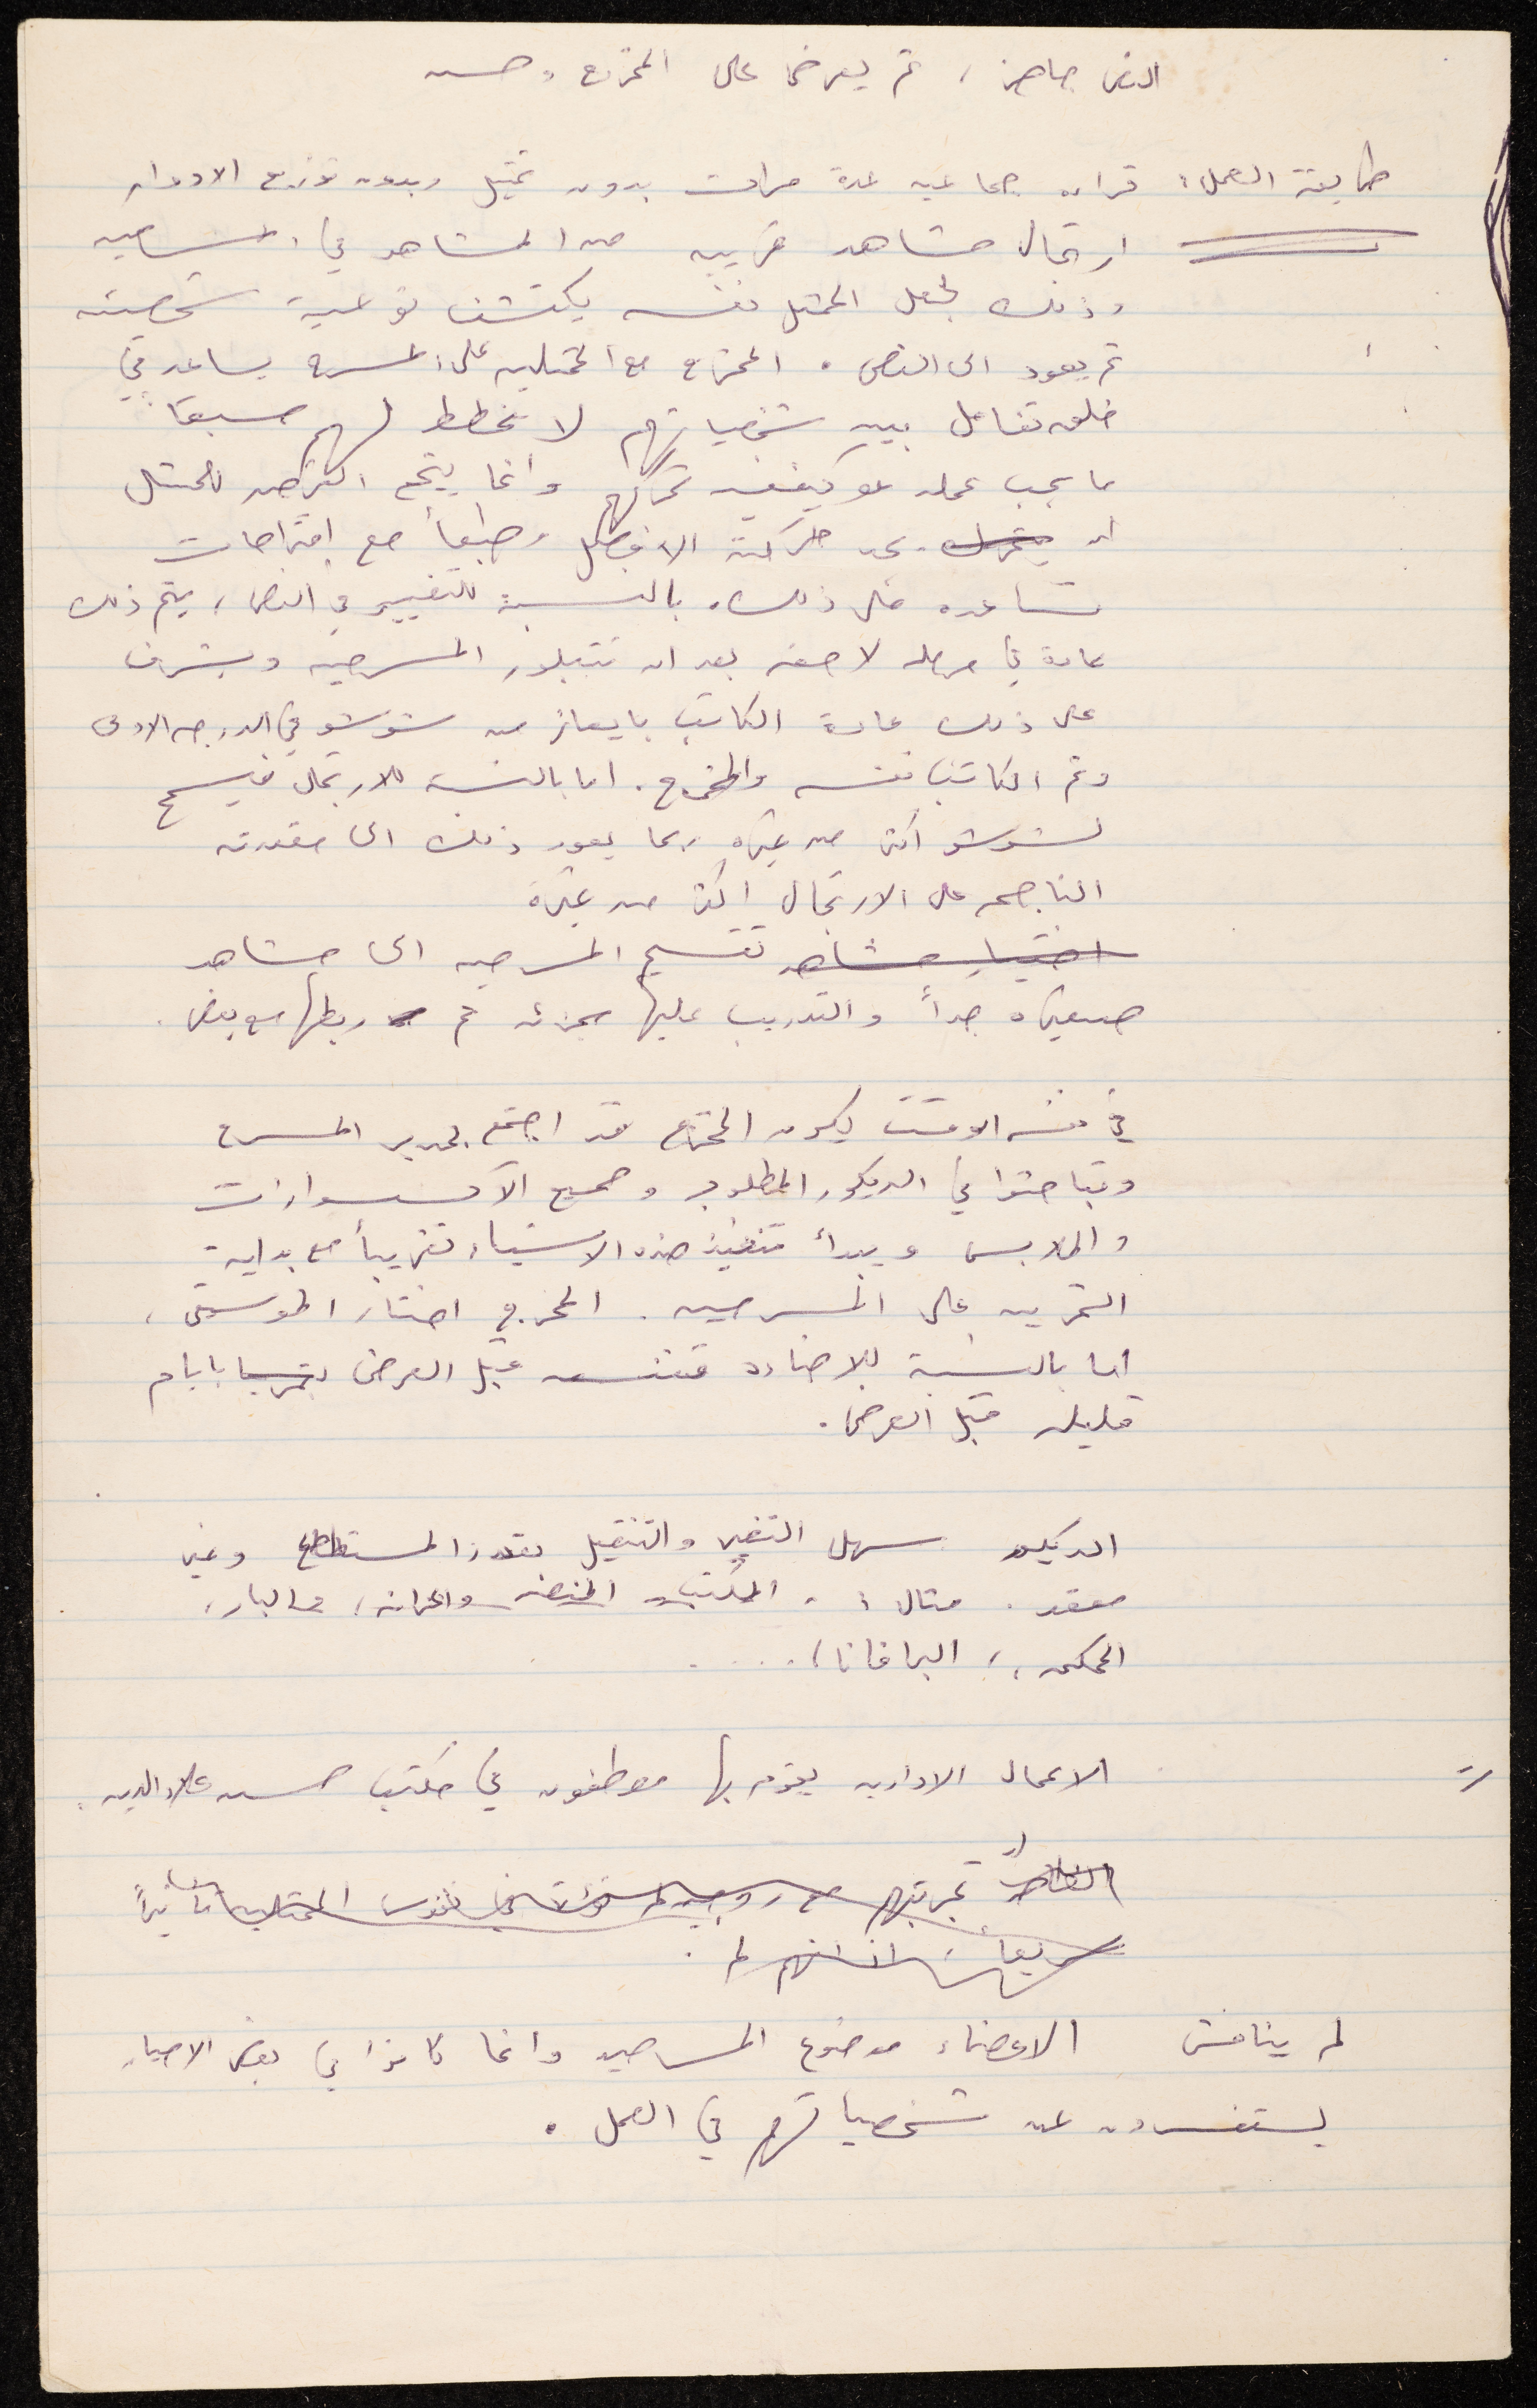 النص جاهز، ثم يعرض على المخرج وحسن
طريقة العمل: قراءه جماعيه عدة مرات بدون تمثيل وبدون توزيع الادوار
ارتجال مشاهد قريبه من المشاهد في المسرحيه
وذلك لجعل الممثل نفسه يكتشف نوعية شخصيته
ثم يعود الى النص. المخرج مع الممثلين على المسرح يساعد في
خلق تفاعل بين شخصياتهم لا تخطط لهم مسبقاً
ما يجب عمله او كيفية تحركهم وانما يتيح الفرصه للممثل
ان يتحرك يجد حركته الافضل وطبعاً مع اقتراحات
تساعده على ذلك. بالنسبة للتغيير في النص، يتم ذلك
عادة في مرحله لاحقه بعد ان تتبلور المسرحيه ويشرف
على ذلك عادة الكاتب بايعاز من شوشو في الدرجه الاولى
وثم الكاتب نفسه والمخرج. اما بالنسبه للارتجال فيسمح
لشوشو اكثر من غيره ربما يعود ذلك الى مقدرته
الناجحه على الارتجال اكثر من غيره
اختيار مشاهد تقسيم المسرحيه الى مشاهد
صغيره جداً والتدريب عليها مجزئه ثم ربطها مع بعض.
في نفس الوقت يكون المخرج قد اجتمع بمدير المسرح
وتباحثوا في الديكور المطلوب وجميع الاكسسوارات
والملابس ويبدأ تنفيذ هذه الاشياء تقريباً مع بداية
التمرين على المسرحيه. المخرج اختار الموسيقى،
اما بالنسبة للاضاءه قبل العرض تقريبا بايام
قليله قبل العرض.
الديكور سهل التغيير والتنقيل بقدر المستطاع وغير
معقد. مثال: المكتب، المنصه والخزانه، والبار،
المحكمه،، البرافانا)....
الاعمال الاداريه يقوم بها موظفون في مكتب حسن علاء الدين.
تجربتهم مع روجيه نفوس الممثلين تأثيراً
سريعاً
لم يناقش الاعضاء موضوع المسرحيه وانما كانوا في بعض الاحيان
يستفسرون عن شخصياتهم في العمل.